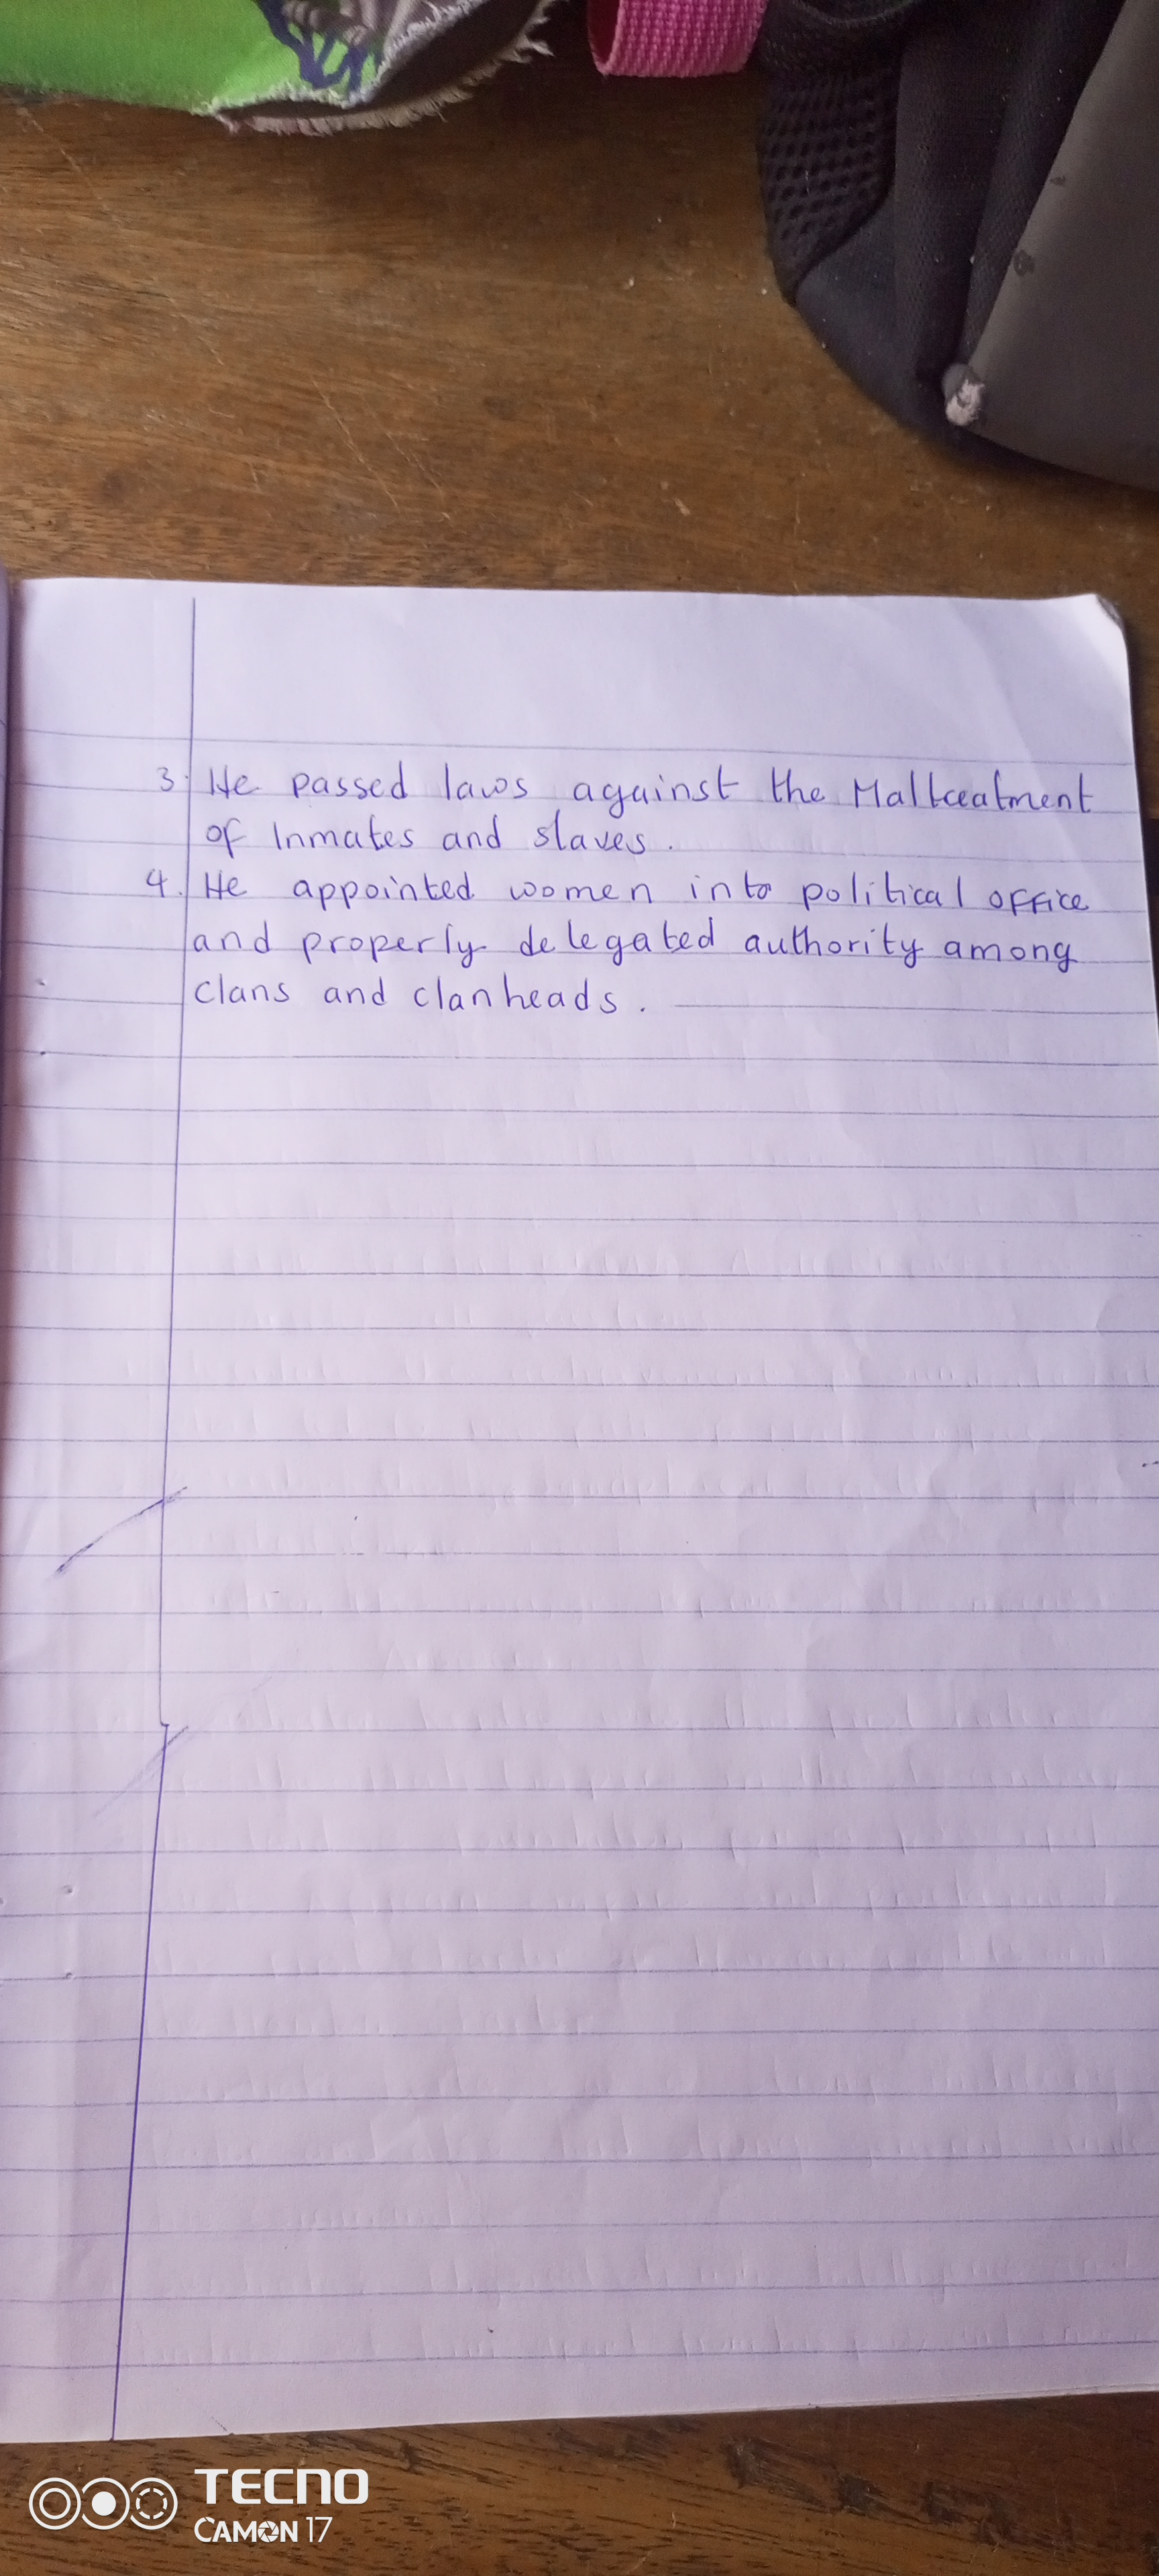 3. He passed laws against the Maltreatment
of Inmates and slaves.
4. He appointed women into political office
and properly delegated authority among
clans and clanheads.
TECNO
CAMON 17